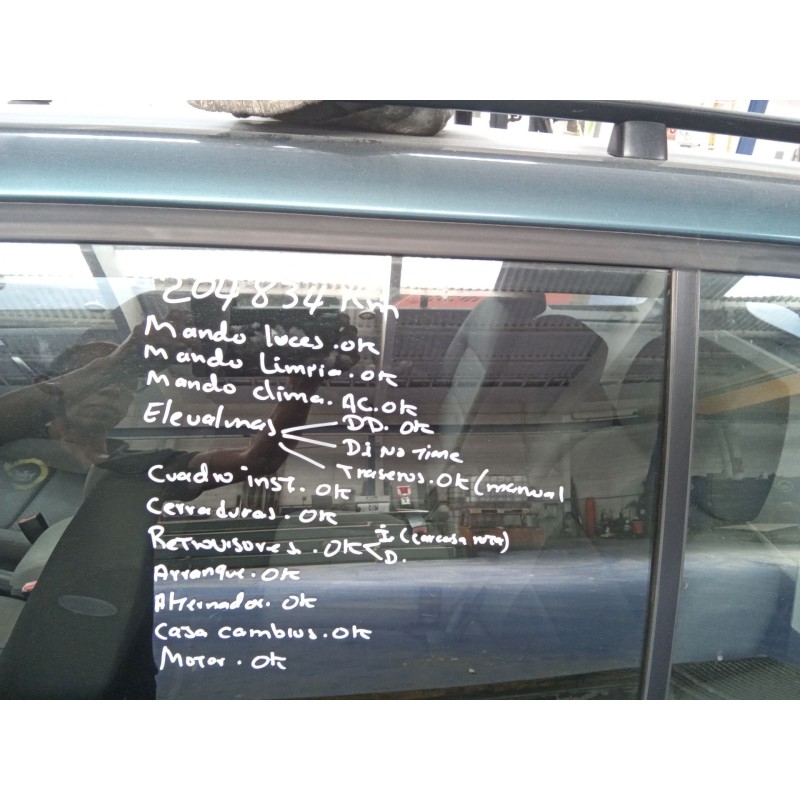 204834 Km
Mando luces. OK
Mando Limpia. OK
Mando clima. AC. OK
Elevalunas DD. OK
DI NO Tiene
Traseros. OK (manual
Cuadro inst. OK
Cerraduras. OK
Retrovisores. OK I (carcasa rota)
D.
Arranque. OK
Alternador. OK
Caja cambios. OK
Motor. OK